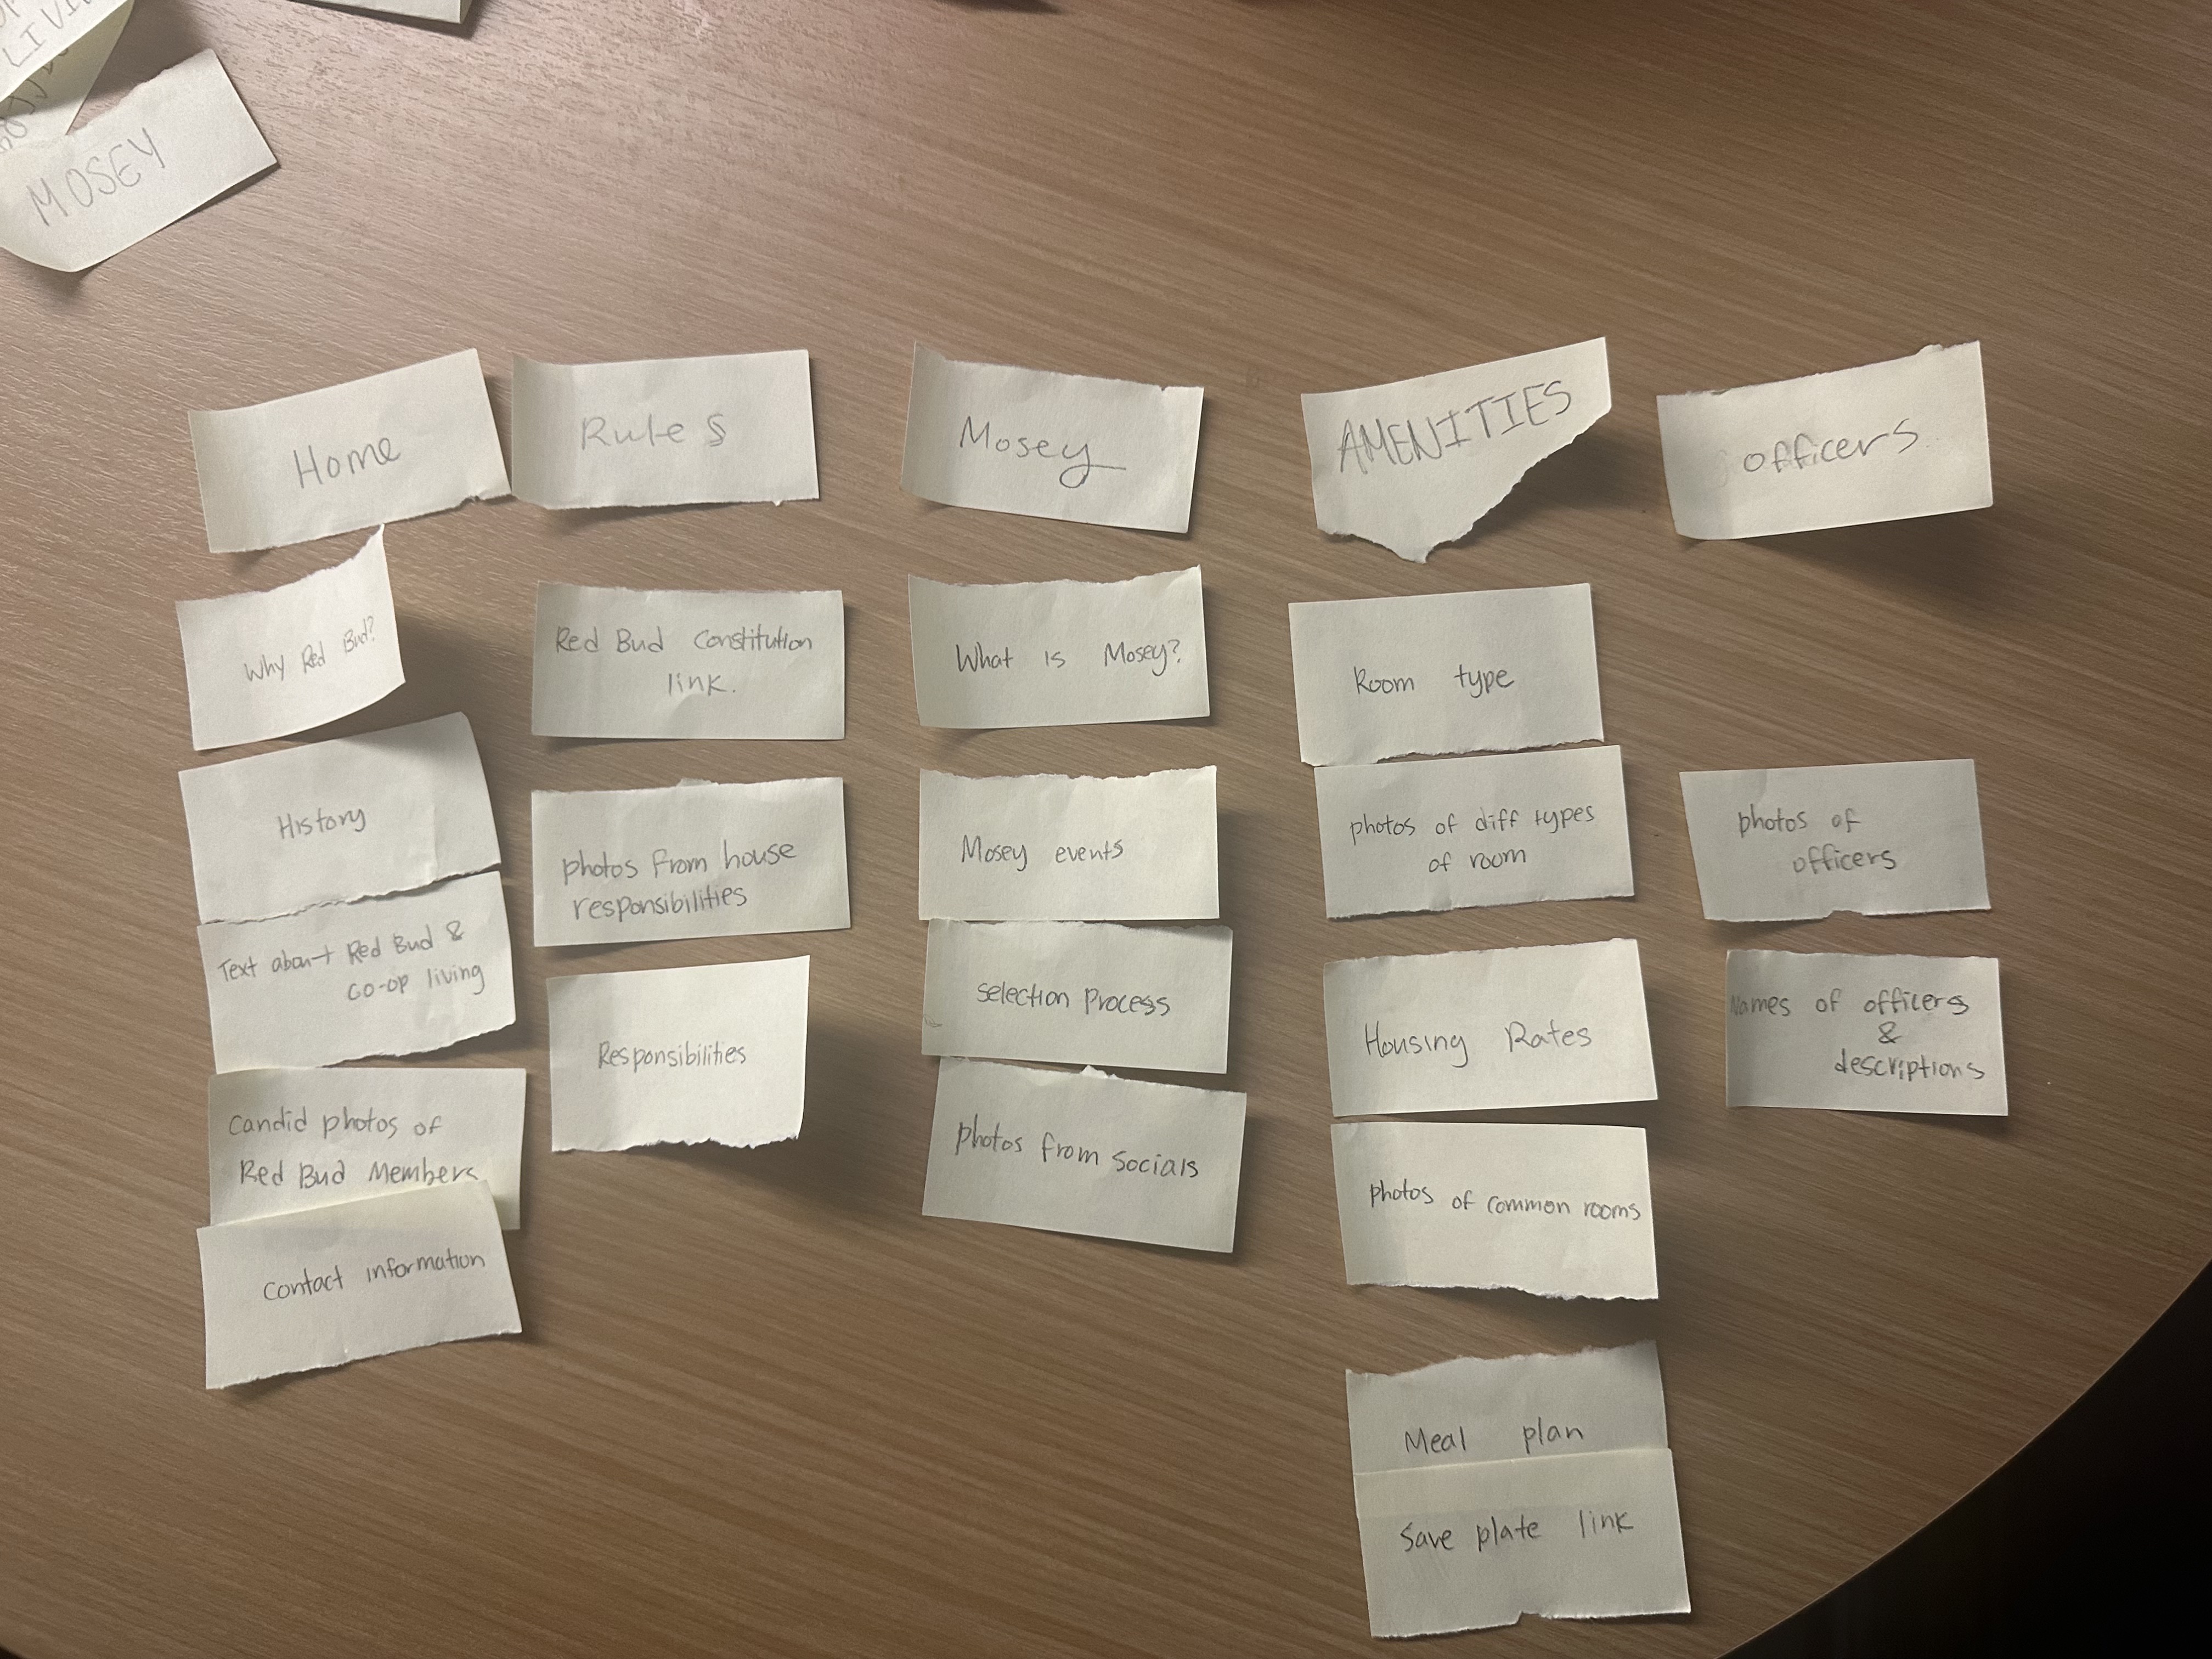 LIVI
MOSEY
Home
Why Red Bud?
History
Text about Red Bud &
co-op living
Candid photos of
Red Bud Members
Contact information
Rules
Red Bud Constitution
link.
photos from house
responsibilities
Responsibilities
Mosey
What is Mosey?
Mosey events
selection Process
photos from socials
AMENITIES
Room type
photos of diff types
of room
Housing Rates
photos of common rooms
Meal plan
Save plate link
officers
photos of
officers
Names of officers
&
descriptions